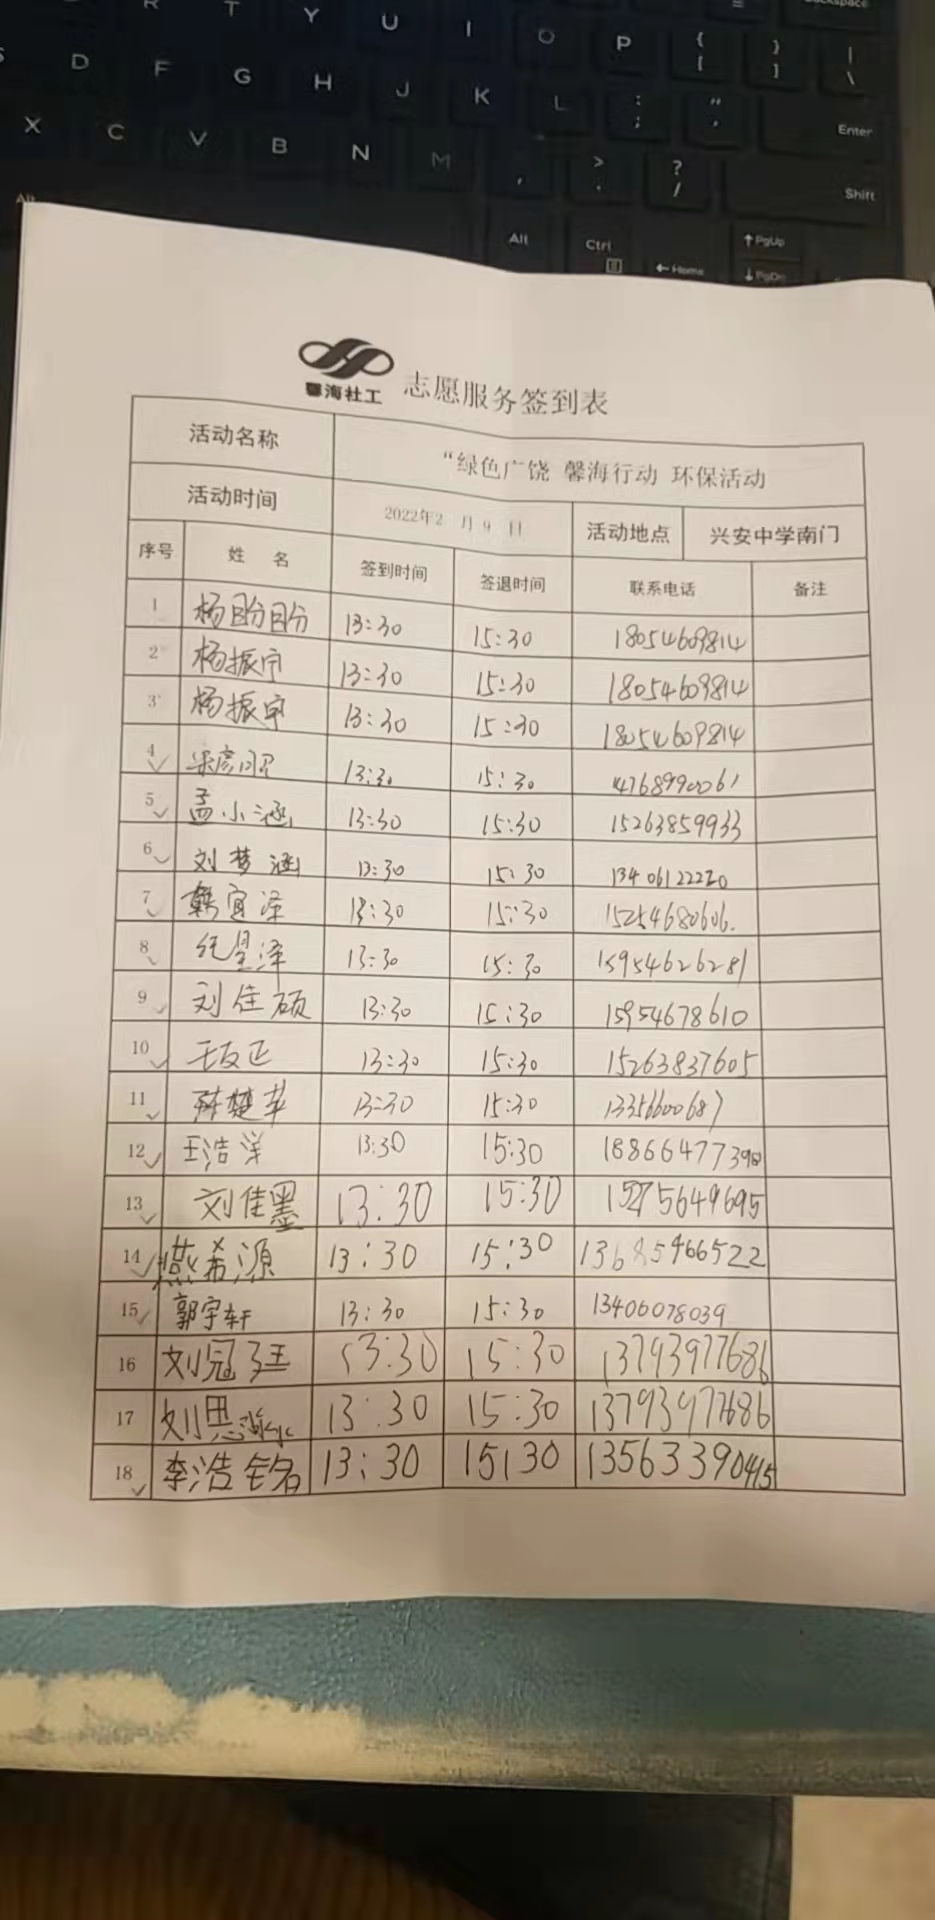 R T Y U I O P { [ } ] | \
S D F G H J K L : ; " ' Enter
X C V B N M , > . ? / Shift
Alt Alt Ctrl ↑PgUp
←Home ↓PgDn
馨海社工 志愿服务签到表
活动名称 “绿色广饶 馨海行动 环保活动
活动时间 2022年2 月 9 日 活动地点 兴安中学南门
序号 姓 名 签到时间 签退时间 联系电话 备注
1 杨盼盼 13:30 15:30 18054609814
2 杨振宇 13:30 15:30 18054609814
3 杨振宇 13:30 15:30 18054609814
4 13:30 15:30
5 孟小涵 13:30 15:30 15263859933
6 刘梦涵 13:30 15:30 13406122220
7 韩宜泽 13:30 15:30 15254680606.
8 纪星泽 13:30 15:30 15954626281
9 刘佳硕 13:30 15:30 15954678610
10 13:30 15:30 15263837605
11 13:30 15:30 13356600687
12 王浩洋 13:30 15:30 18866477398
13 刘佳墨 13:30 15:30 15275649695
14 燕希源 13:30 15:30 13685466522
15 郭宇轩 13:30 15:30 13406078039
16 刘冠廷 13:30 15:30 13793977686
17 刘思 13:30 15:30 13793977686
18 李浩铭 13:30 15:30 13563390415